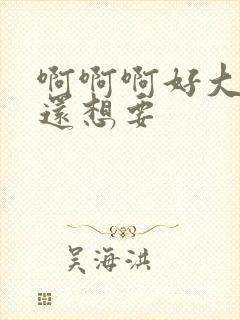 啊啊啊好大
還想要
吴海洪